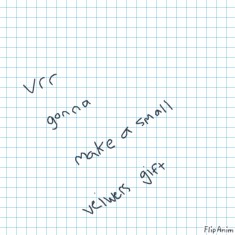 vrr
gonna
make a small
veiwers gift
FlipAnim